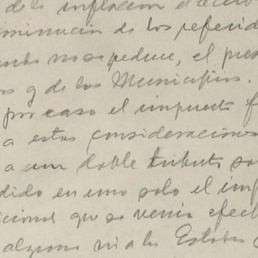 de la inflación
disminución de los referid
no se reduce, el pre
s y de los Municipios.
por caso el impuesto f
a estas consideraciones
a un doble tributo so
dido en uno solo el imp
cional que se venía efec
algunos ni a los Estados